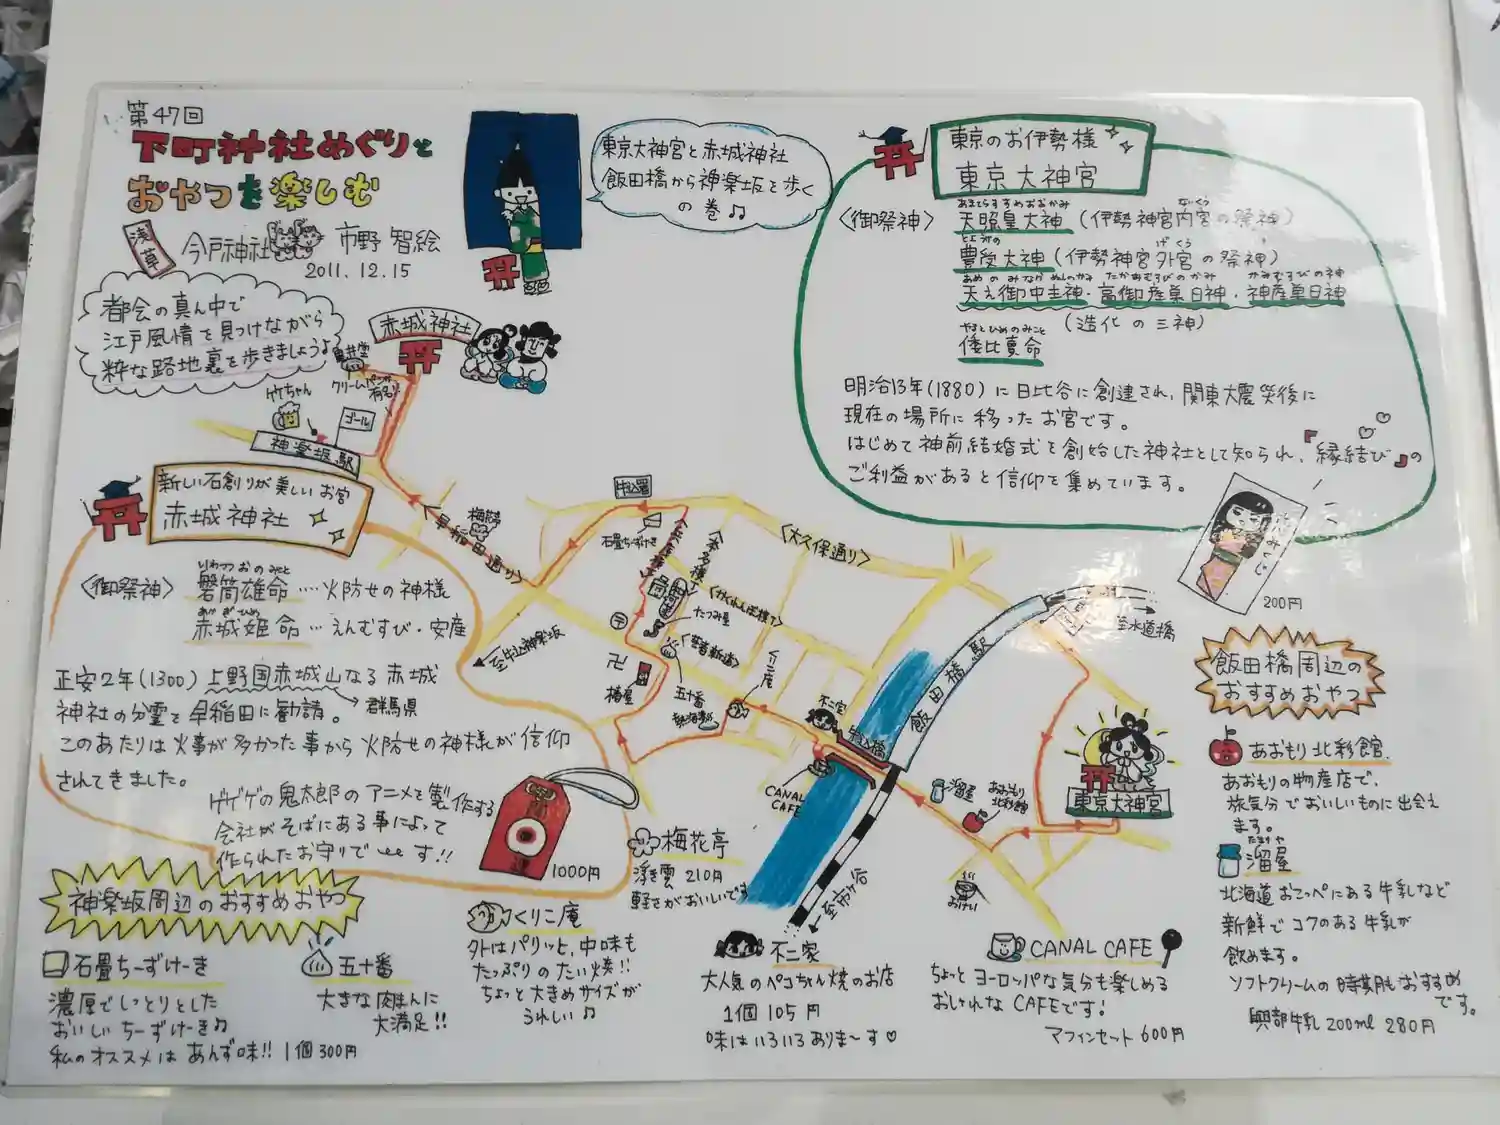 第47回
下町神社めぐりと
おやつを楽しむ
浅草
今戸神社
市野 智絵
2011.12.15
東京大神宮と赤城神社
飯田橋から神楽坂を歩く
の巻♫
都会の真ん中で
江戸風情を見つけながら
粋な路地裏を歩きましょう♪
東京のお伊勢様
東京大神宮
〈御祭神〉
あまてらすすめおおかみ
天照皇大神(伊勢神宮内宮の祭神)
ないくう
豊受大神(伊勢神宮外宮の祭神)
げくう
天之御中主神・高御産巣日神・神産巣日神
(造化の三神)
やまとひめのみこと
倭比賣命
明治13年(1880)に日比谷に創建され、関東大震災後に
現在の場所に移ったお宮です。
はじめて神前結婚式を創始した神社として知られ、『縁結び』の
ご利益があると信仰を集めています。
みくじ
200円
赤城神社
亀井堂
クリームパンが
有名!
竹ちゃん
ゴール
神楽坂駅
新しい石創りが美しいお宮
赤城神社
〈御祭神〉
いわつつおのみこと
磐筒雄命…火防せの神様
あかぎひめ
赤城姫命…えんむすび・安産
正安2年(1300)上野国赤城山なる赤城
神社の分霊を早稲田に勧請。
群馬県
このあたりは火事が多かった事から火防せの神様が信仰
されてきました。
ゲゲゲの鬼太郎のアニメを製作する
会社がそばにある事によって
作られたお守りです!!
1000円
〈早稲田通り〉
梅花亭
牛込署
石畳ちーずけーき
〈大久保通り〉
〈本多横丁〉
〈かくれんぼ横丁〉
たつみ屋
〈芸者新道〉
至牛込神楽坂
卍
椿屋
五十番
くりこ庵
不二家
牛込橋
CANAL
CAFE
飯田橋駅
至水道橋
至市ヶ谷
溜屋
あおもり
北彩館
東京大神宮
飯田橋周辺の
おすすめおやつ
あおもり北彩館
あおもりの物産店で、
旅気分でおいしいものに出会え
ます。
溜屋
北海道おこっぺにある牛乳など
新鮮でコクのある牛乳が
飲めます。
ソフトクリームの時期もおすすめ
です。
興部牛乳200ml 280円
神楽坂周辺のおすすめおやつ
石畳ちーずけーき
濃厚でしっとりとした
おいしいちーずけーき♫
私のオススメはあんず味!! 1個300円
五十番
大きな肉まんに
大満足!!
くりこ庵
外はパリッと、中味も
たっぷりのたい焼!!
ちょっと大きめサイズが
うれしい♫
梅花亭
浮き雲 210円
軽さがおいしいです
不二家
大人気のペコちゃん焼のお店
1個105円
味はいろいろありま〜す♡
CANAL CAFE
ちょっとヨーロッパな気分も楽しめる
おしゃれなCAFEです!
マフィンセット600円